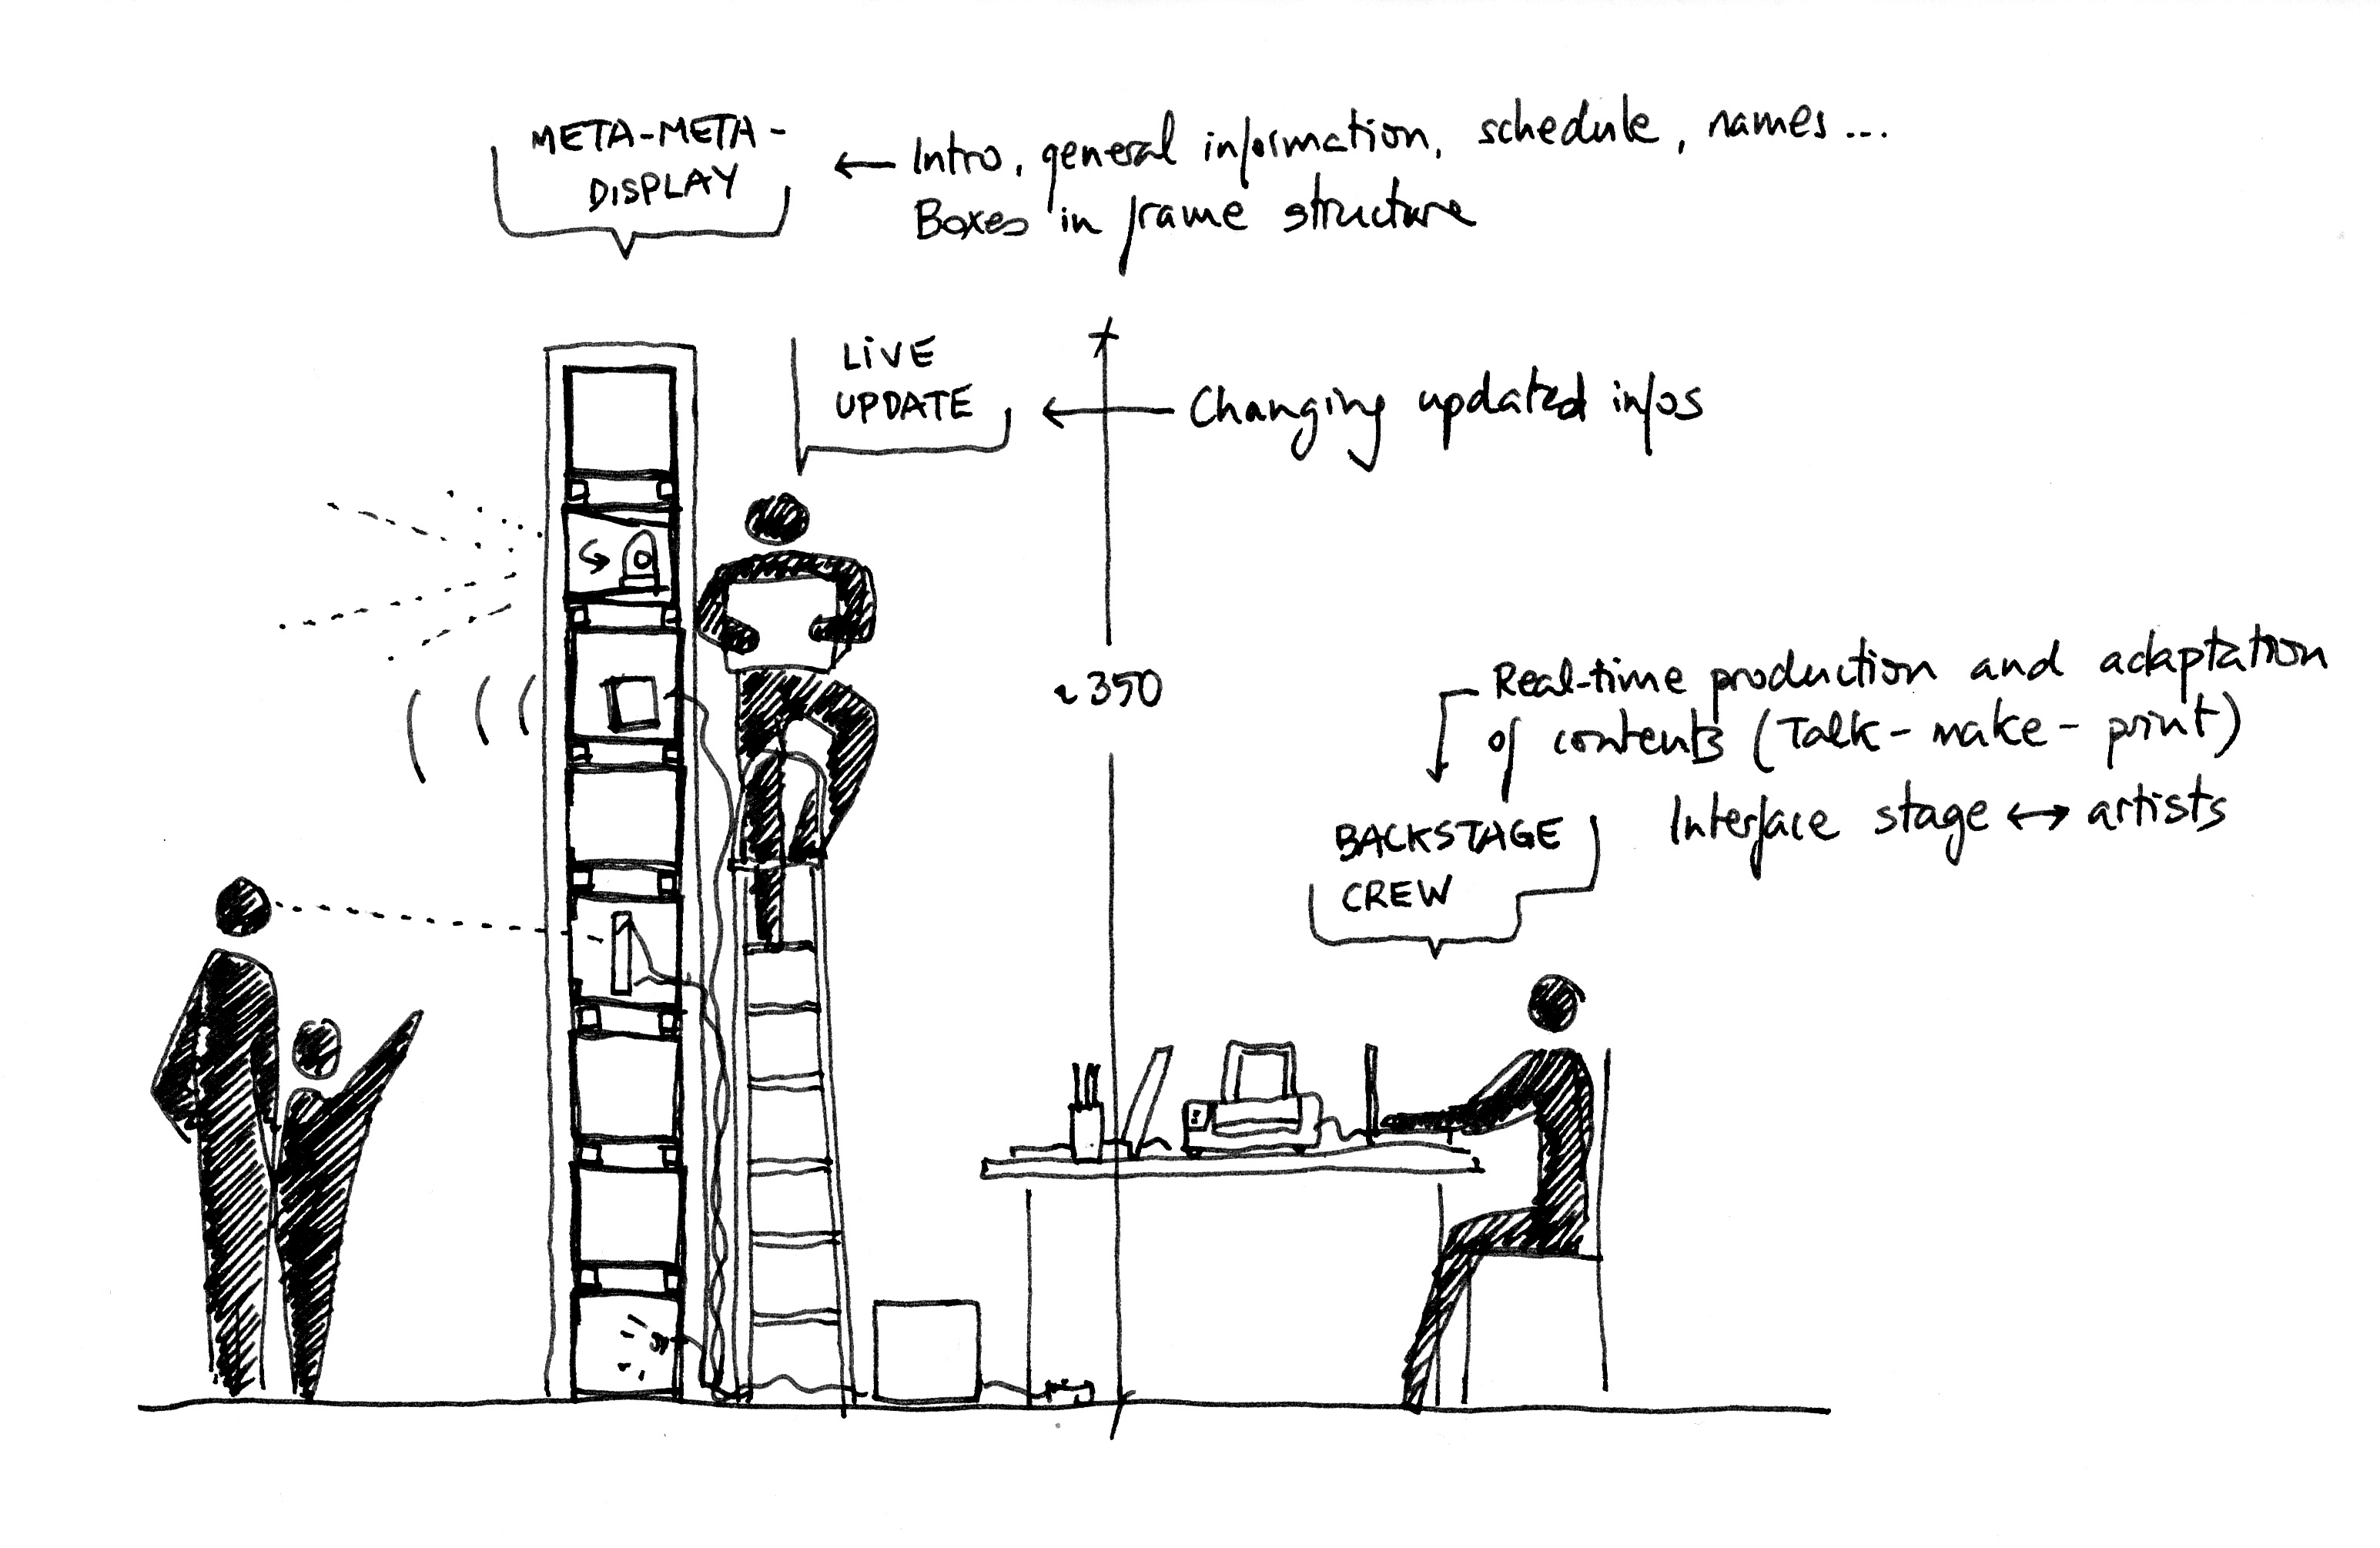 META-META-
DISPLAY
← Intro, general information, schedule, names...
Boxes in frame structure
LiVE
UPDATE
← Changing updated infos
~350
Real-time production and adaptation
of contents (Talk-make-print)
Interface stage ↔ artists
BACKSTAGE
CREW